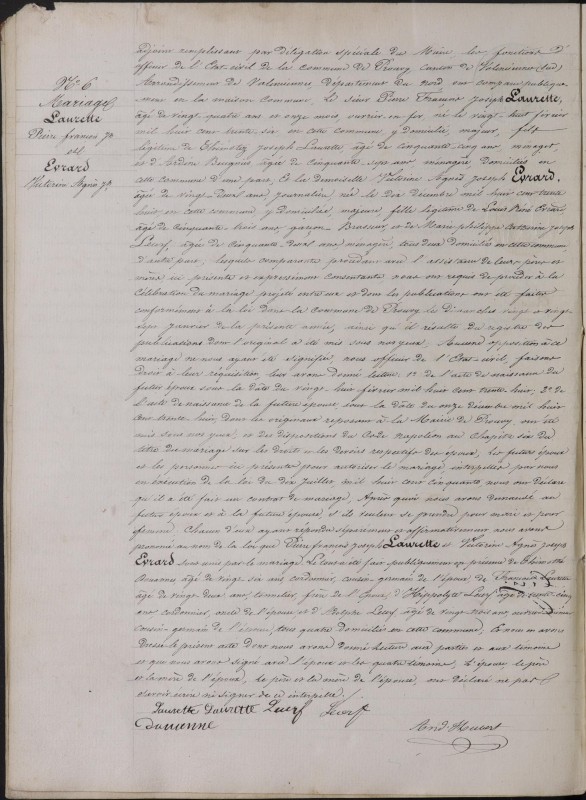 N° 6
Mariage
Laurette
Pierre françois Jh
et
Evrard
Victorine Agnès Jh
adjoint remplissant par délégation spéciale du Maire, les fonctions d'
officier de l'Etat-civil de la commune de Prouvy, canton de Valenciennes (Sud)
Arrondissement de Valenciennes, Département du Nord sont comparus publique-
ment en la maison commune, Le sieur Pierre François Joseph Laurette,
âgé de vingt-quatre ans et onze mois, ouvrier en fer, né le vingt-huit février
mil huit cent trente six en cette commune, y domicilié, majeur, fils
légitime de Joseph Laurette, âgé de cinquante cinq ans, ménager,
et d' âgée de cinquante sept ans, ménagère, domiciliés en
cette commune d'une part, Et la demoiselle Victorine Agnès Joseph Evrard,
âgée de vingt-deux ans, journalière, née le dix décembre mil huit cent trente
huit en cette commune, y domiciliée, majeure, fille légitime de Louis Evrard,
âgé de cinquante trois ans, garçon-Brasseur, et de Marie philippe Joseph
Lecerf, âgée de cinquante-deux ans, ménagère, tous deux domiciliés en cette commune,
d'autre part; lesquels comparants procédant avec l'assistance de leurs pères et
mères ici présents et expressément consentants nous ont requis de procéder à la
Célébration du mariage projeté entre eux et dont les publications ont été faites
conformément à la loi dans la commune de Prouvy les dimanches vingt et vingt-
sept janvier de la présente année, ainsi qu'il résulte du registre des
publications dont l'original a été mis sous nos yeux. Aucune opposition à ce
mariage ne nous ayant été signifiée, nous officier de l'Etat-civil, faisant
droit à leur réquisition, leur avons donné lecture: 1° de l'acte de naissance du
futur époux sous la date du vingt-huit février mil huit cent trente-huit, 2° de
l'acte de naissance de la future épouse, sous la date du onze décembre mil huit
cent trente-huit, dont les originaux reposant à la Mairie de Prouvy ont été
mis sous nos yeux, et des dispositions du Code Napoléon au Chapitre six du
titre du mariage sur les droits et les devoirs respectifs des époux, Les futurs époux
et les personnes ici présentes pour autoriser le mariage interpellés par nous
en exécution de la loi du dix juillet, mil huit cent cinquante, nous ont déclaré
qu'il a été fait un contrat de mariage, Après quoi nous avons demandé au
futur époux et à la future épouse s'ils veulent se prendre pour mari et pour
femme. Chacun d'eux ayant répondu séparément et affirmativement nous avons
prononcé au nom de la loi que Pierre françois Joseph Laurette et Victorine Agnès Joseph
Evrard sont unis par le mariage. Le tout a été fait publiquement en présence de
âgé de vingt six ans, cordonnier, cousin-germain de l'époux, de François Laurette
âgé de vingt-deux ans, tonnelier, frère de l'époux, d'Hippolyte Lecerf âgé de trente cinq
ans, cordonnier, oncle de l'épouse et d' Lecerf, âgé de vingt-trois ans,
cousin-germain de l'épouse, tous quatre domiciliés en cette commune, Et nous en avons
dressé le présent acte dont nous avons donné lecture aux parties et aux témoins
et que nous avons signé avec l'époux et les quatre témoins. L'épouse, le père
et la mère de l'époux, le père et la mère de l'épouse, ont déclaré ne pas
savoir écrire ni signer de ce interpellés.
Laurette Laurette Lecerf Lecerf